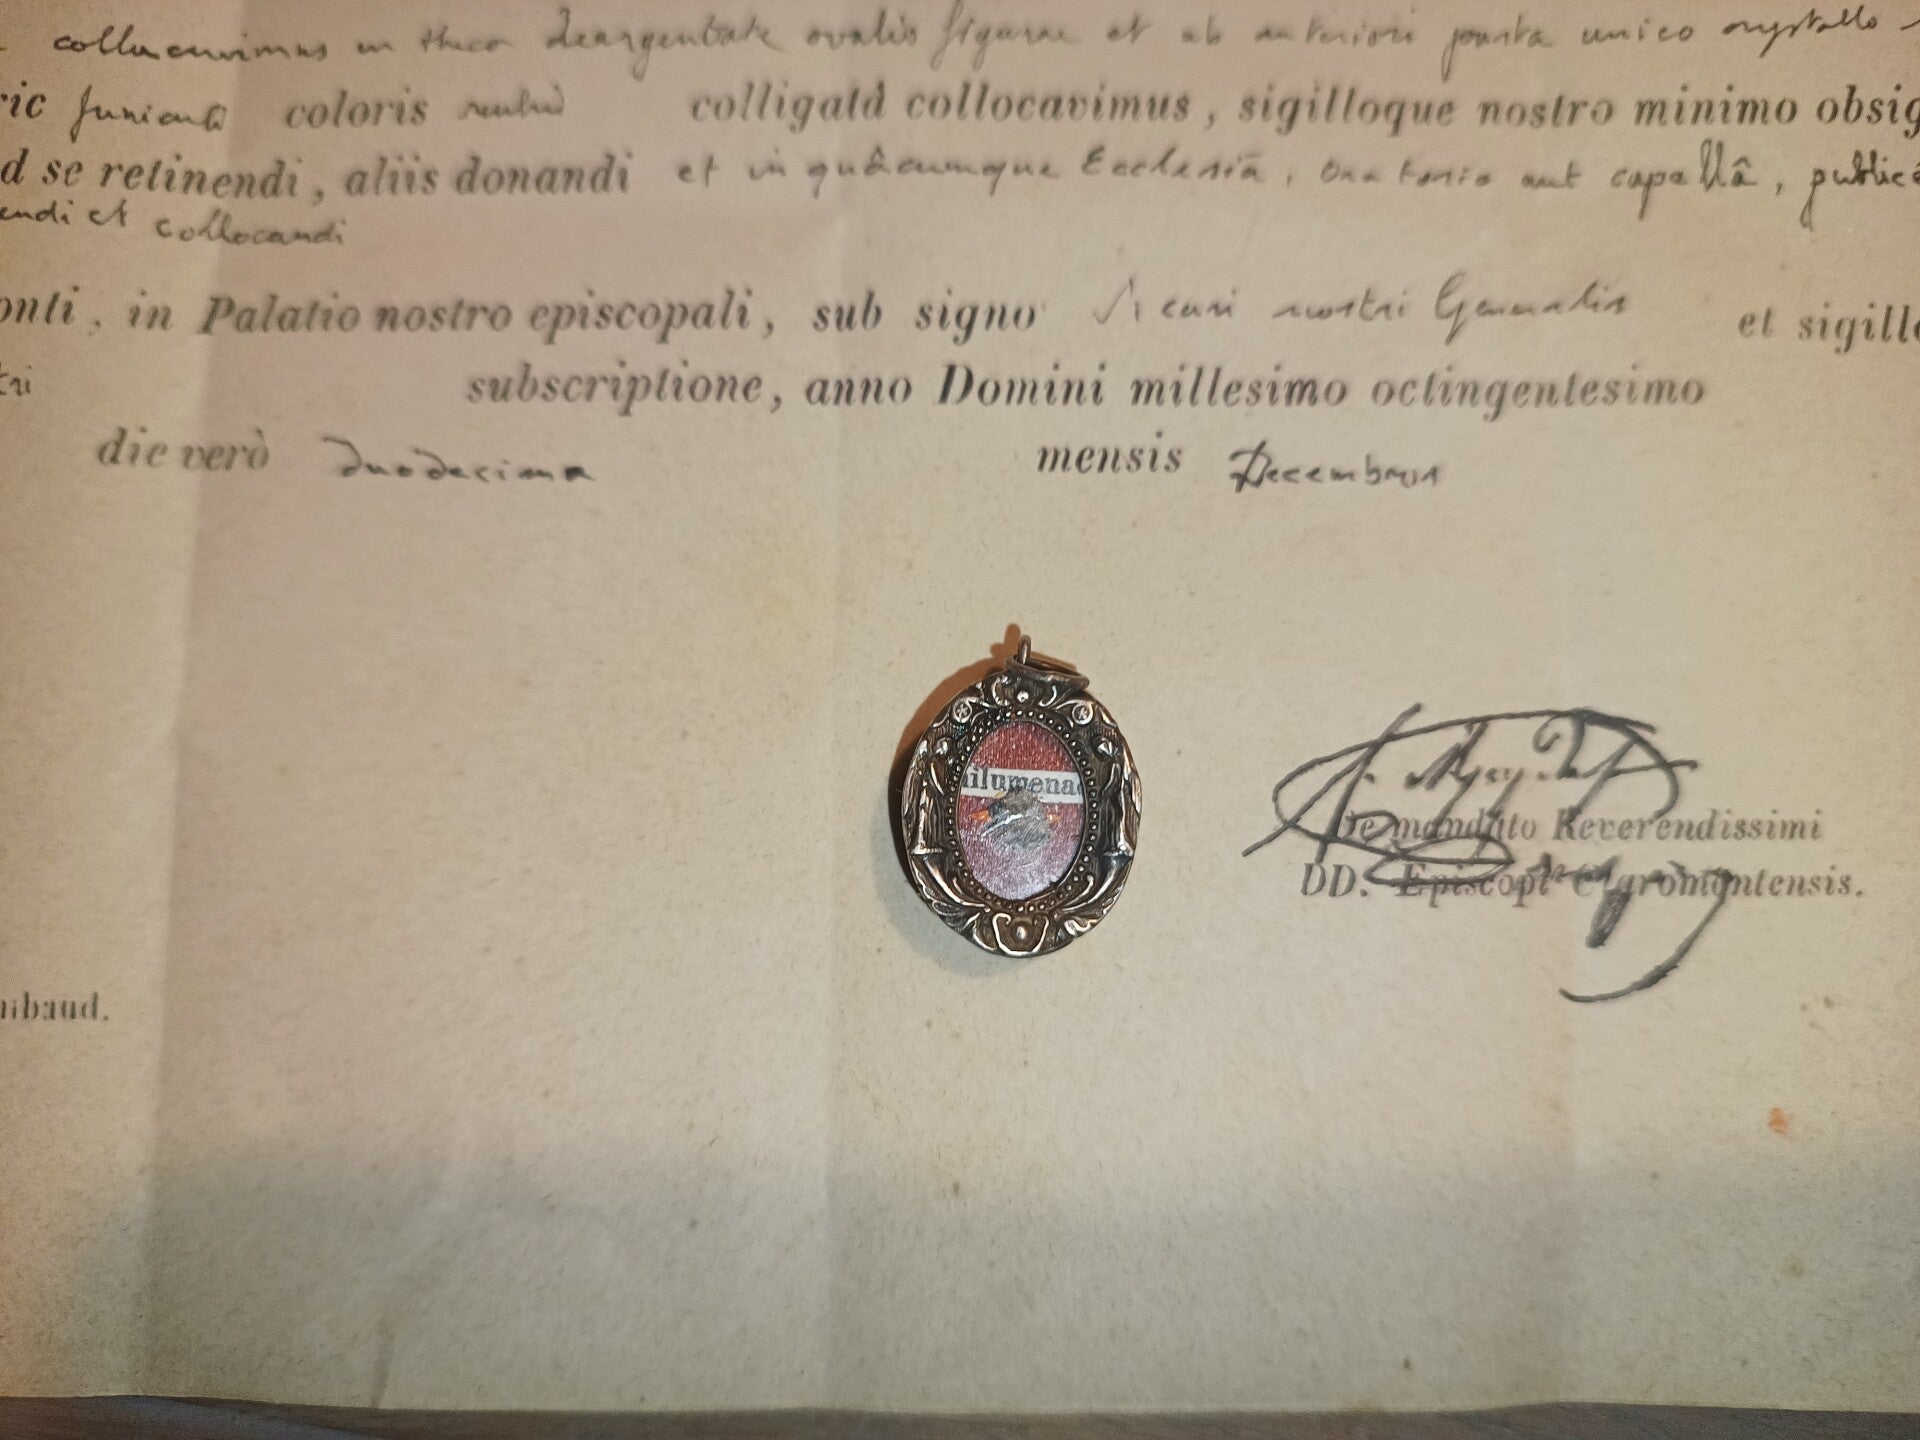 collocavimus in theca deargentata ovalis figurae et ab anteriori parte unico crystallo
ric funiculo coloris rubri colligatâ collocavimus, sigilloque nostro minimo obsig
d se retinendi, aliis donandi et in quâcumque Ecclesiâ, oratorio aut capellâ, public
endi et collocandi
onti, in Palatio nostro episcopali, sub signo Vicari nostri Generalis et sigill
tri subscriptione, anno Domini millesimo octingentesimo
die verò duodecima mensis Decembris
ilumenae
De mandato Reverendissimi
DD. Episcopi Claromontensis.
hibaud.